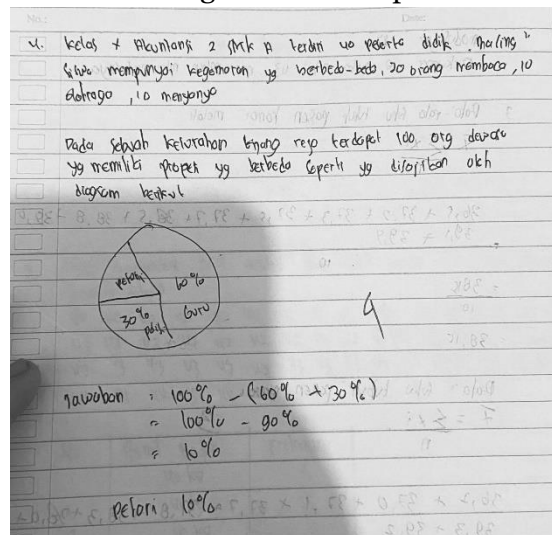 No.:
Date:
4. kelas x Akuntansi 2 SMK A terdiri 40 peserta didik. Masing"
Siswa mempunyai kegemaran yg berbeda-beda, 20 orang membaca, 10
olahraga, 10 menyanyi
Pada sebuah kelurahan rejo terdapat 100 org dewasa
yg memiliki yg berbeda seperti yg disajikan oleh
diagram berikut
petani
60%
Guru
30%
9
Jawaban = 100% - (60% + 30%)
= 100% - 90%
= 10%
petani 10%